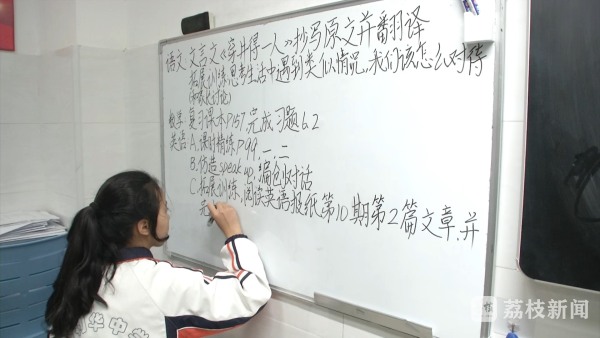 语文:文言文《穿井得一人》抄写原文并翻译
拓展训练:思考生活中遇到类似情况,我们该怎么对待
(和家长讨论)
数学:复习课本P157,完成习题6.2
英语:A.课时精练P99.一.二
B.仿造speak up,编创对话
C.拓展训练,阅读英语报纸第10期第2篇文章,并
完
华中学
荔枝新闻